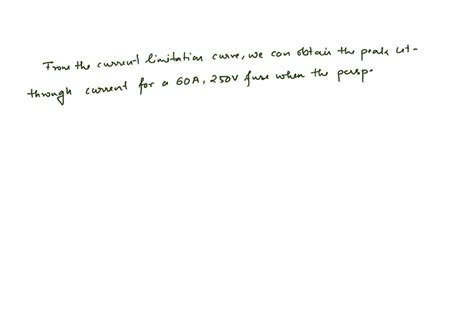 From the current limitation curve, we can obtain the peak let-
through current for a 60A, 250V fuse when the persp.